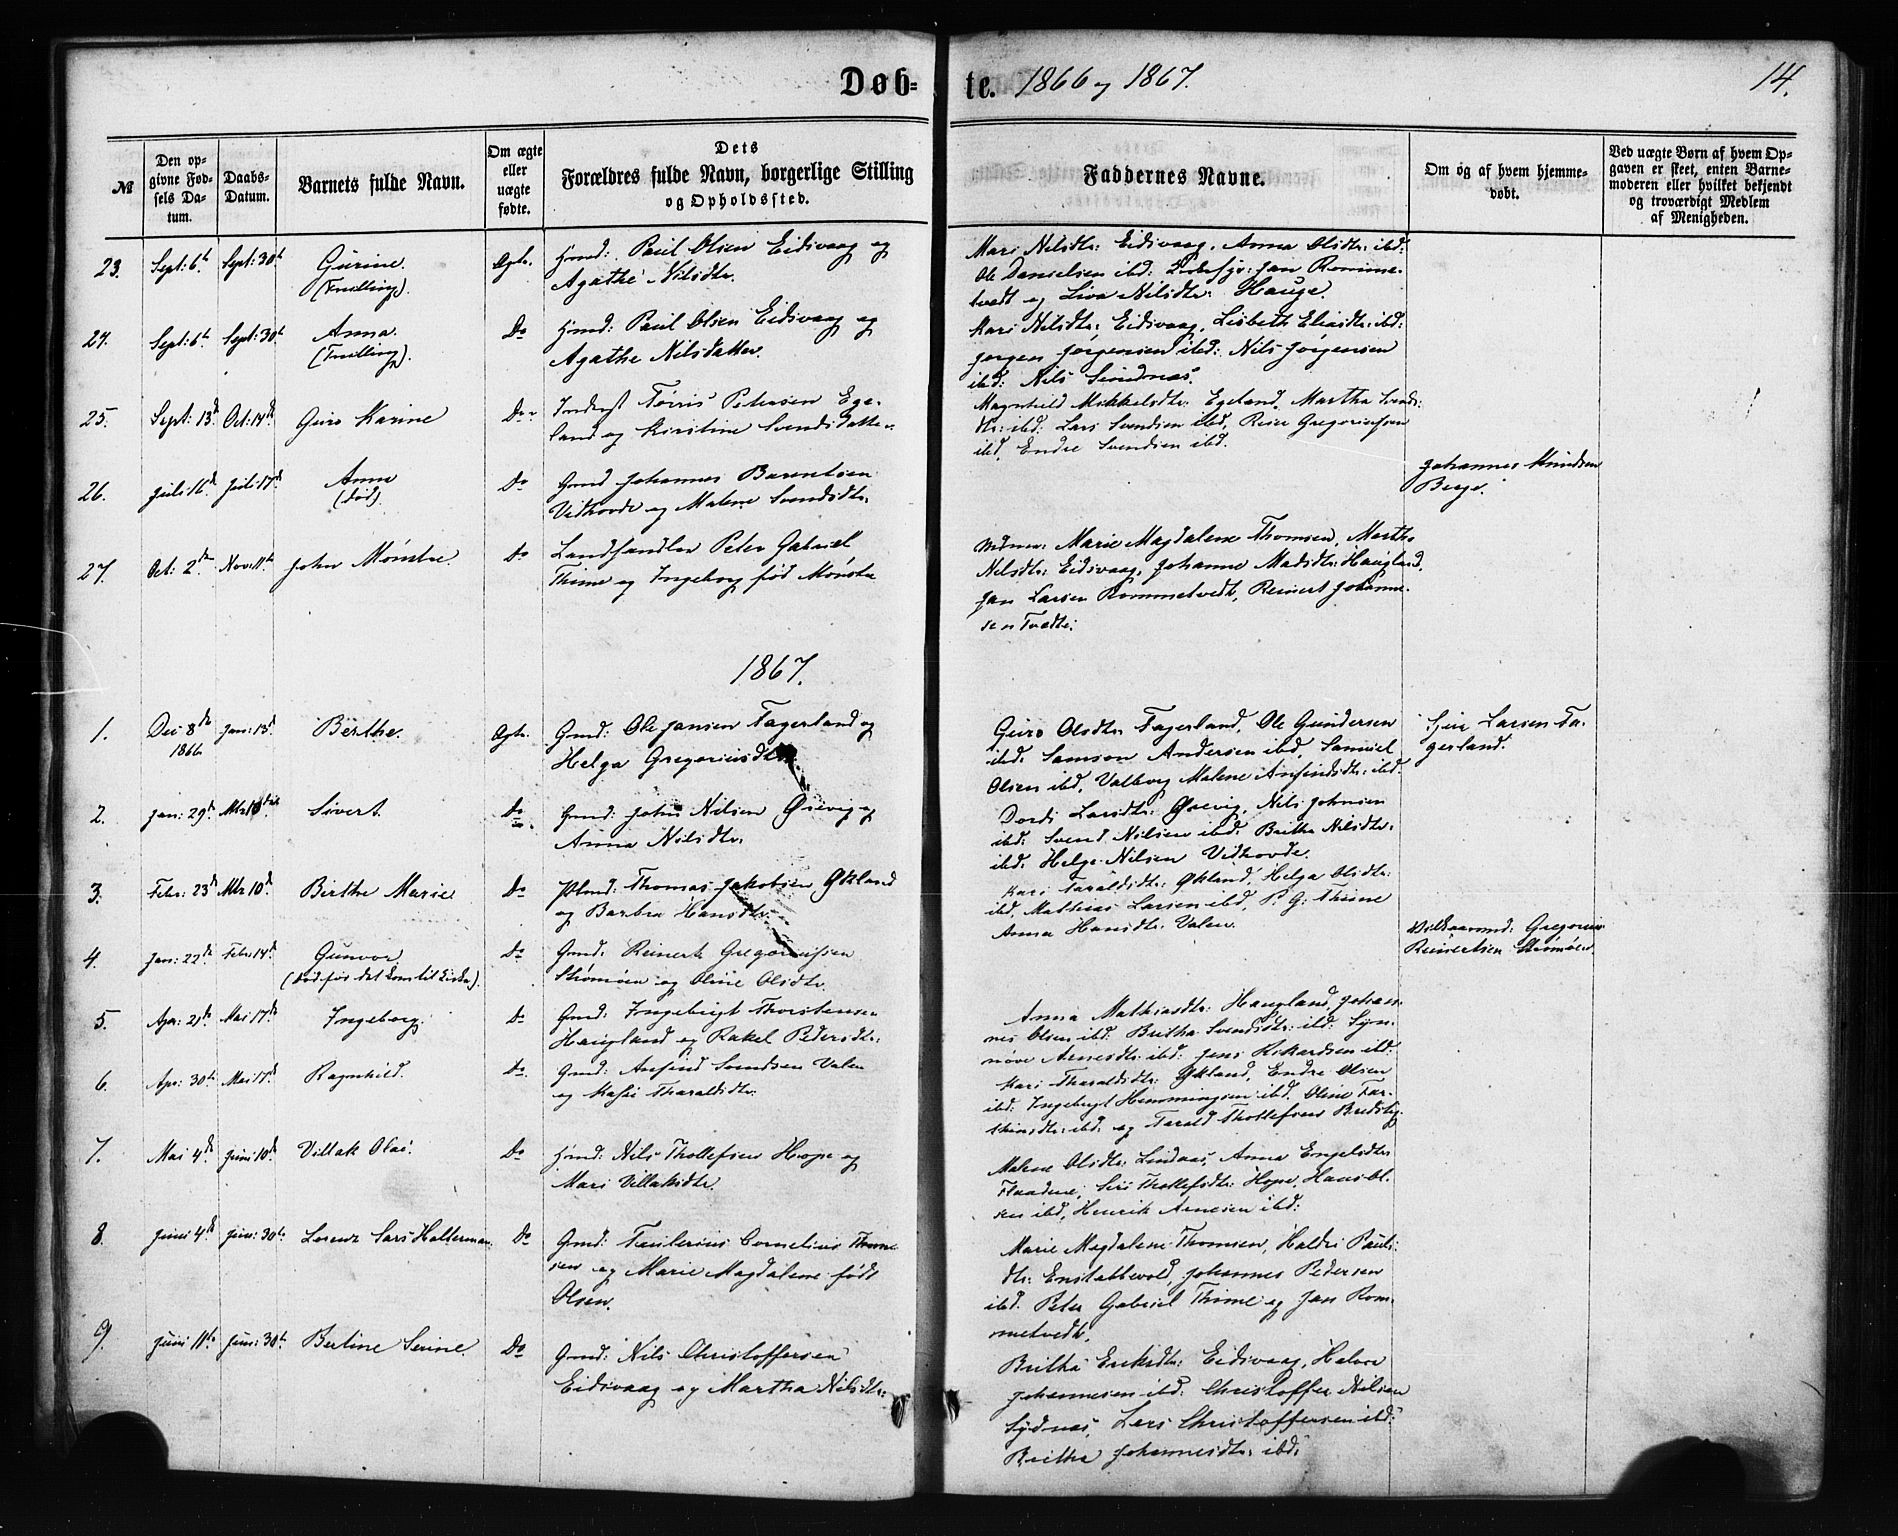 Døb=
te. 1866 og 1867.
14.
№
Den opgivne Fødsels Datum.
Daabs-Datum.
Barnets fulde Navn.
Om ægte eller uægte fødte.
Dets
Forældres fulde Navn, borgerlige Stilling
og Opholdssted.
Faddernes Navne.
Om og af hvem hjemmedøbt.
Ved uægte Børn af hvem Opgaven er skeet, enten Barnemoderen eller hvilket bekjendt og troværdigt Medlem af Menigheden.
23. Sept: 6te Sept: 30te Gurine. (Tvilling). Ægte. Hmd: Paul Olsen Eidsvaag og
Agathe Nilsdtr.
Mari Nilsdtr: Eidsvaag, Anna Olsdtr: ibd:
Ole Danielsen ibd: Jan Romme-
tvedt og Liva Nilsdtr: Hauge.
24. Sept: 6te Sept: 30te Anna. (Tvilling). Do Hmd: Paul Olsen Eidsvaag og
Agathe Nilsdatter.
Kari Nilsdtr: Eidsvaag, Lisbeth Eliasdtr: ibd:
Jørgen Jørgensen ibd: Nils Jørgensen
ibd: Nils Simdnæs.
25. Sept: 13de Oct: 14de Guro Karine Do Inderst Tørris Petersen Ege-
land og Kirstine Svendsdatter
Magnhild Mikkelsdtr: Egeland, Martha Svends-
dtr: ibd: Lars Svendsen ibd, Reier Gregoriussen
ibd, Endre Svendsen ibd.
26. Juli 16de Juli 17de Anna (død). Do Gmd Johannes Barentsen
Vidhovde og Malene Svendsdtr.
Johannes Knudsen
Berge.
27. Oct: 2den Nov: 11te John Mønster. Do Landhandler Peter Gabriel
Thime og Ingeborg fød Mønster
Mdme: Marie Magdalene Thomsen, Martha
Nilsdtr: Eidsvaag, Johanne Madsdtr: Haugland,
Jan Larsen Rommetvedt, Reinert Johanne-
sen Tvedte.
1867.
1. Dec 8de 1866 Jan: 13de Berthe. Ægte. Gmd: Ole Jansen Fagerland og
Helga Gregoriusdtr.
Guro Olsdtr: Fagerland, Ole Gundersen
ibd. Samson Andersen ibd, Samuel
Olsen ibd, Valborg Malene Anfindsdtr: ibd.
Larsen Fa-
gerland.
2. Jan: 29de Mts 10de Sivert. Do Gmd: John Nilsen Grevig og
Anna Nilsdtr.
Dordi Larsdtr: Grevig, Nils Johnsen
ibd: Svend Nilsen ibd. Britha Nilsdtr:
ibd. Helge Nilsen Vidhovde.
3. Febr: 23de Mts 10de Birthe Marie Do Plmd: Thomas Jakobsen Økland
og Barbra Hansdtr.
Kari Taraldsdtr: Økland, Helga Olsdtr:
ibd, Mathias Larsen ibd, P. G. Thime
Anna Hansdtr: Valen.
4. Jan: 22de Febr: 14de Gunvor. (død før det kom til Kirke). Do Gmd: Reinert Gregoriussen
Strømøen og Oline Olsdtr.
Vilkaarmd: Gregorius
Reinertsen Strømøen.
5. Apr: 21de Mai 17de Ingeborg. Do Gmd: Ingebrigt Thorstensen
Haugland og Rakel Pedersdtr:
Anna Mathiasdtr: Haugland, Johan-
nes Olsen ibd: Britha Svendsdtr: ibd: Syn-
nøve Arnesdtr: ibd: Jens Rikardsen ibd:
6. Apr: 30te Mai 17de Ragnhild. Do. Gmd: Anfind Svendsen Valen
og Kari Tharaldsdtr.
Kari Tharaldsdtr: Økland, Endre Olsen
ibd: Ingebrigt Hemmingsen ibd. Oline Tor-
ibd: og Tarald Thollefsens
7. Mai 4de Juni 10de Villak Olai. Do Hmd: Nils Thollefsen Hope og
Mari Villaksdtr.
Malene Olsdtr: Lindaas, Anna Engelsdtr
Siri Thollefsdtr: Hope, Hans Ol-
sen ibd, Henrik Arnesen ibd:
8. Juni 4de Juni 30te Lorenz Lars Halterman Do Gmd: Cornelius Thom-
sen og Marie Magdalene født
Olsen.
Marie Magdalene Thomsen, Haldri Pauls-
dtr: Enstabbevold, Johannes Pedersen
ibd. Peter Gabriel Thime og Jan Rom-
metvedt.
9. Juni 11te Juni 30te Bertine Serine. Do Gmd: Nils Christoffersen
Eidsvaag og Martha Nilsdtr:
Britha Eriksdtr: Eidsvaag, Halvor
Johannesen ibd: Christoffer Nilsen
Sydnæs, Lars Christoffersen ibd:
Britha Johannesdtr: ibd: